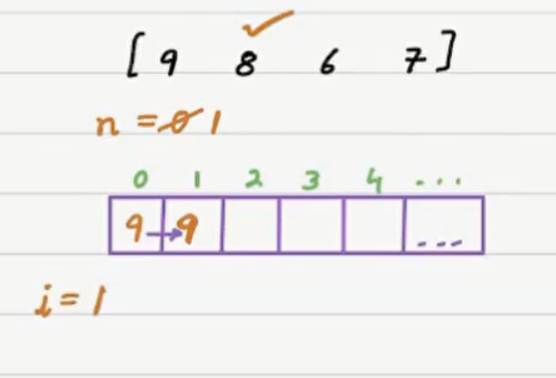 [ 9 8 6 7 ]
n = 0 1
0 1 2 3 4 ...
9 → 9 ...
i = 1